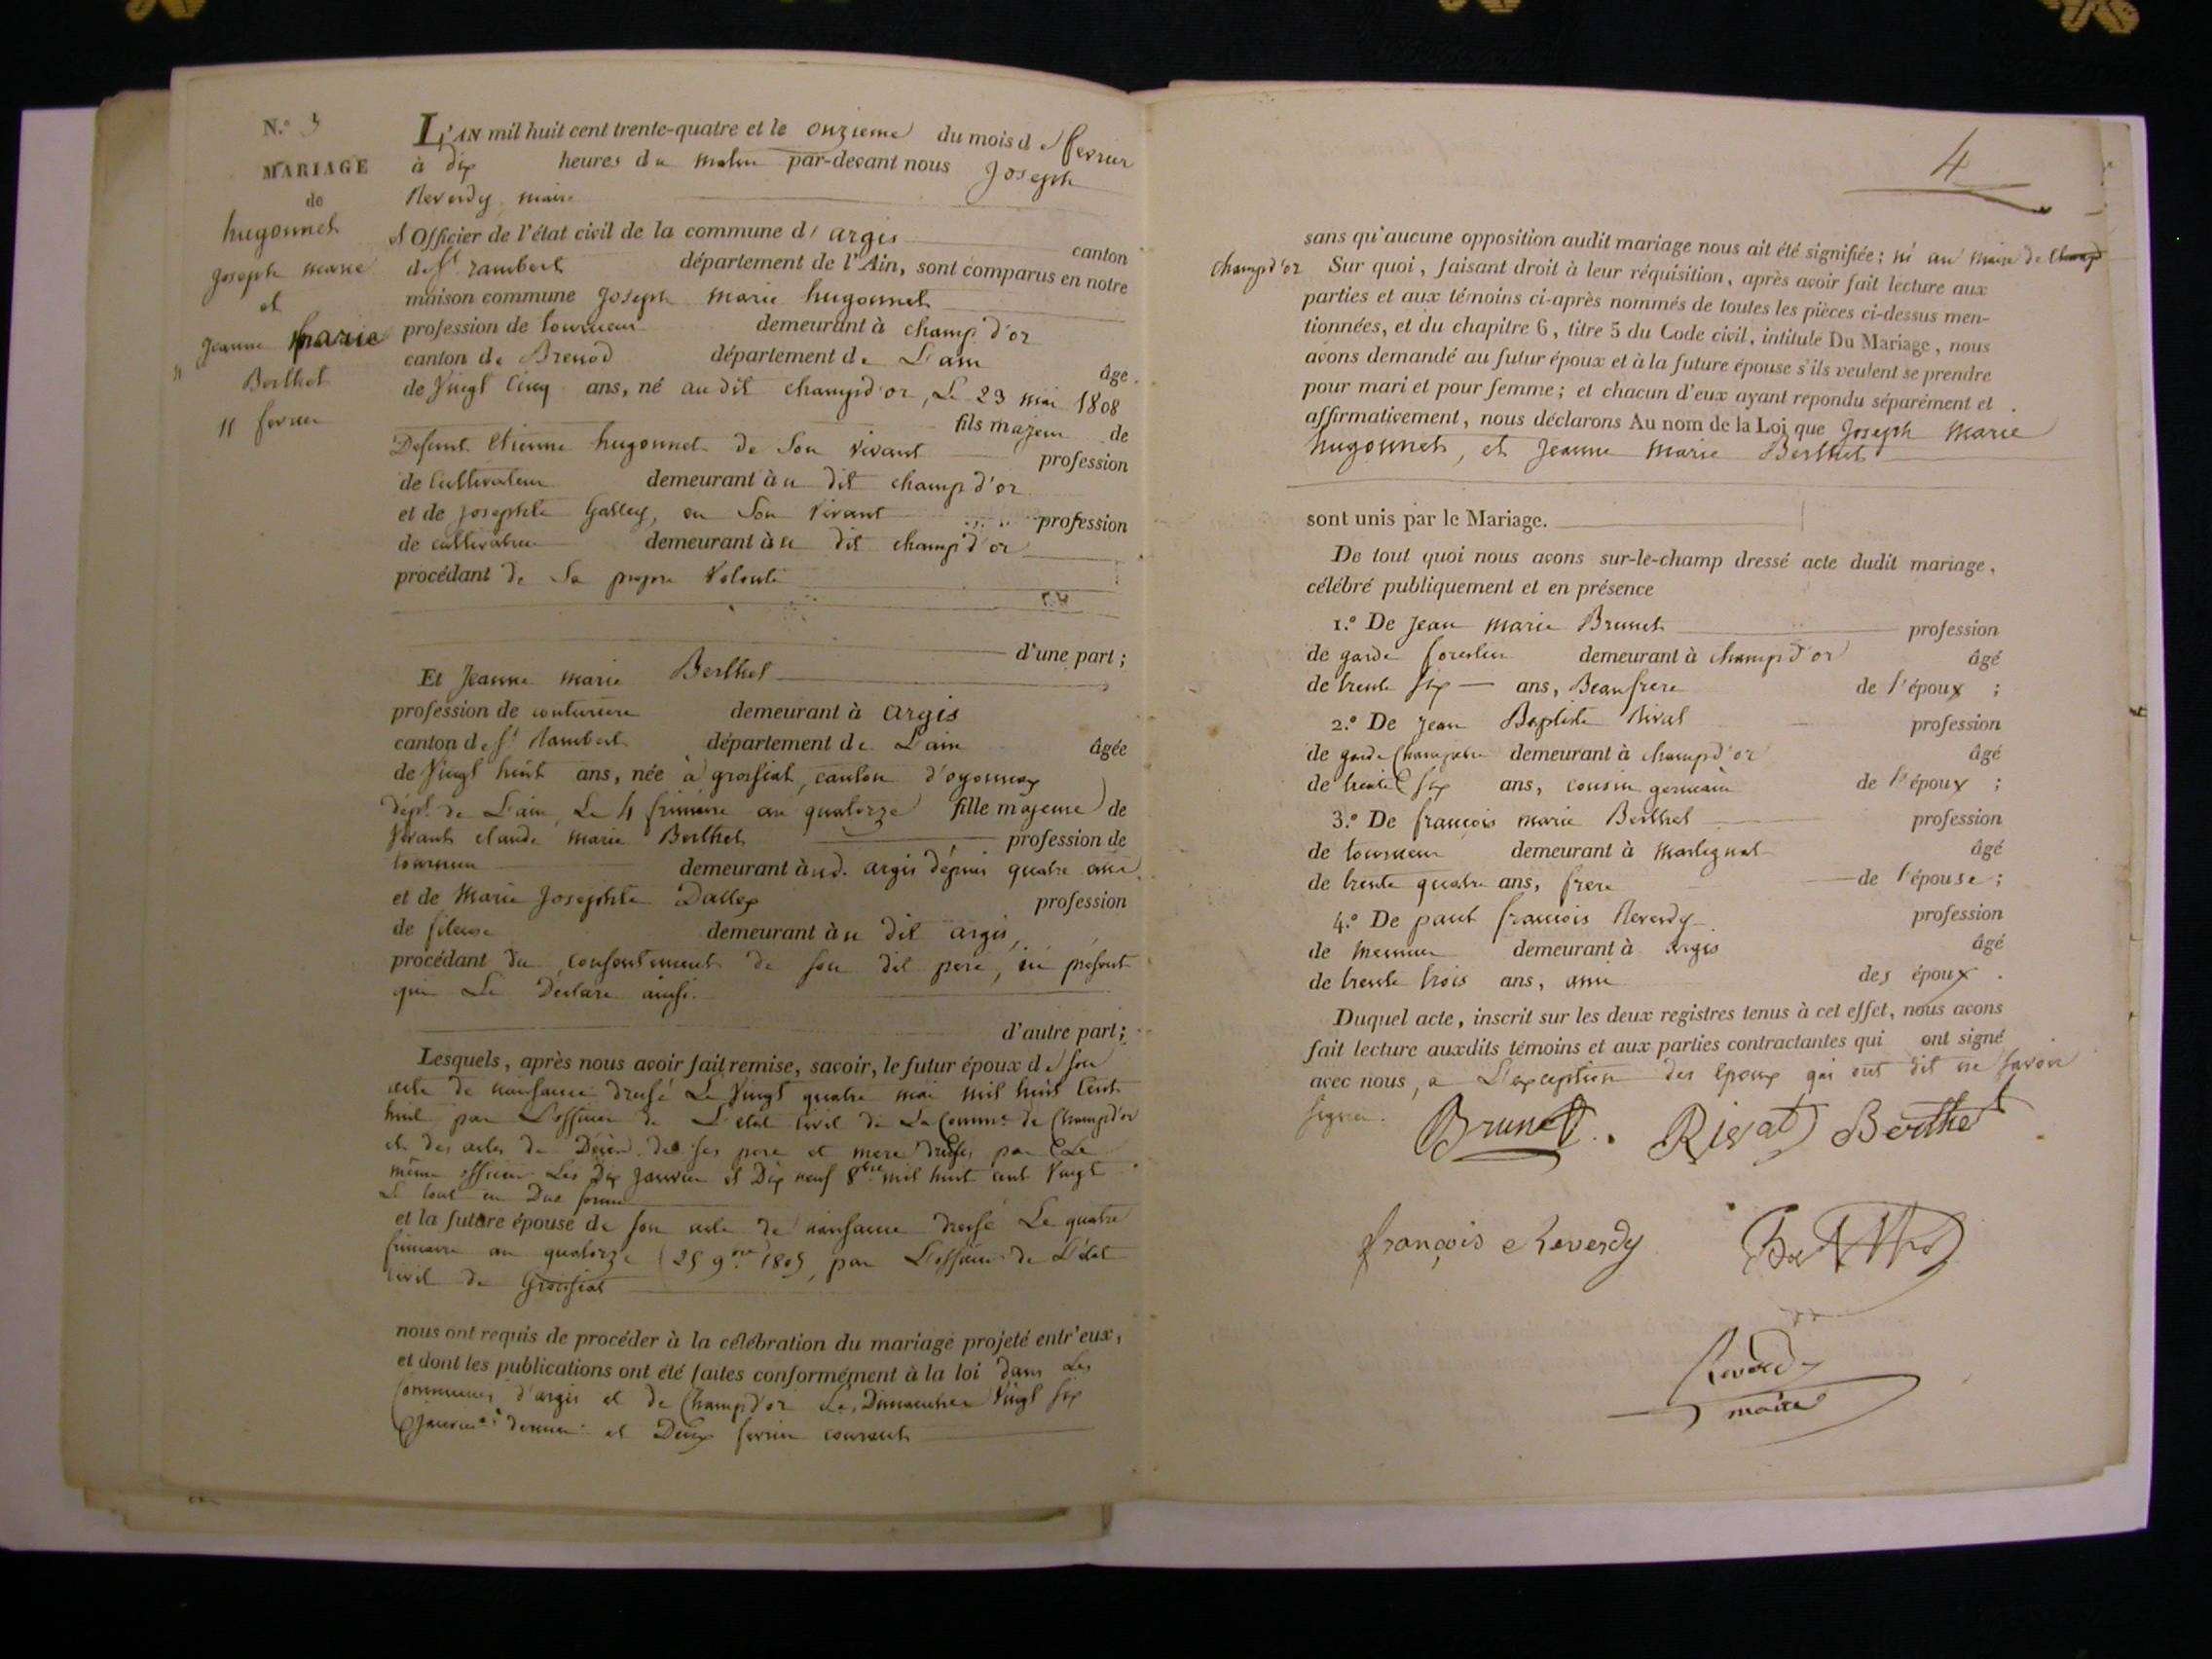 N.º 3
MARIAGE
de
hugonnet
Joseph marie
et
Jeanne marie
Berthet
11 fevrier
L'AN mil huit cent trente-quatre et le onzieme du mois de fevrier
à dix heures du matin par-devant nous Joseph
Reverdy, maire
et Officier de l'état civil de la commune d'argis canton
de St rambert département de l'Ain, sont comparus en notre
maison commune Joseph marie hugonnet
profession de tourneur demeurant à champ d'or
canton de Brenod département de L'ain âgé
de Vingt Cinq ans, né au dit champd'or, Le 23 mai 1808
fils majeur de
Defunt Etienne hugonnet de Son vivant profession
de Cultivateur demeurant au dit champ d'or
et de Josephte Galley, en Son Vivant profession
de cultivatrice demeurant au dit champ d'or
procédant de Sa propre Volonté
d'une part ;
Et Jeanne marie Berthet
profession de couturiere demeurant à argis
canton de St Rambert département de L'ain âgée
de Vingt huit ans, née à groissiat, canton d'oyonnax
dépt. de L'ain, Le 4 frimaire an quatorze fille majeure de
Vivant claude marie Berthet profession de
tourneur demeurant aud. argis depuis quatre ans
et de Marie Josephte Dallex profession
de fileuse demeurant au dit argis,
procédant du consentement de son dit pere, ici présent
qui Le Déclare ainsi.
d'autre part ;
Lesquels, après nous avoir fait remise, savoir, le futur époux de son
acte de naissance dressé Le Vingt quatre mai mil huit Cent
huit par L'officier de L'état Civil de La Comme de Champd'or
et des actes de Décès de ses pere et mere dressés par Le
même officier Les Dix Janvier et Dix neuf 8bre mil huit cent Vingt
Le tout en Due forme
et la future épouse de son acte de naissance dressé Le quatre
frimaire an quatorze (25 9bre 1805, par L'officier de L'état
Civil de Groissiat
nous ont requis de procéder à la célébration du mariage projeté entr'eux,
et dont les publications ont été faites conformément à la loi dans Les
Communes d'argis et de Champd'or Les Dimanches Vingt six
Janvier dernier et Deux fevrier courant
4
sans qu'aucune opposition audit mariage nous ait été signifiée ; ni au maire de Champ
champd'or Sur quoi, faisant droit à leur réquisition, après avoir fait lecture aux
parties et aux témoins ci-après nommés de toutes les pièces ci-dessus men-
tionnées, et du chapitre 6, titre 5 du Code civil, intitulé Du Mariage, nous
avons demandé au futur époux et à la future épouse s'ils veulent se prendre
pour mari et pour femme ; et chacun d'eux ayant répondu séparément et
affirmativement, nous déclarons Au nom de la Loi que Joseph Marie
hugonnet, et Jeanne Marie Berthet
sont unis par le Mariage.
De tout quoi nous avons sur-le-champ dressé acte dudit mariage,
célébré publiquement et en présence
1.º De Jean marie Brunet profession
de garde forestier demeurant à champd'or âgé
de trente six ans, Beaufrere de l'époux ;
2.º De Jean Baptiste Rivat profession
de garde Champetre demeurant à champd'or âgé
de trente Six ans, cousin germain de l'époux ;
3.º De françois marie Berthet profession
de tourneur demeurant à martignat âgé
de trente quatre ans, frere de l'épouse ;
4.º De paul françois Reverdy profession
de meunier demeurant à argis âgé
de trente trois ans, ami des époux .
Duquel acte, inscrit sur les deux registres tenus à cet effet, nous avons
fait lecture auxdits témoins et aux parties contractantes qui ont signé
avec nous, a L'exception des époux qui ont dit ne savoir
signer. Brunet. Rivat Berthet
françois Reverdy Berthet
Reverdy
maire